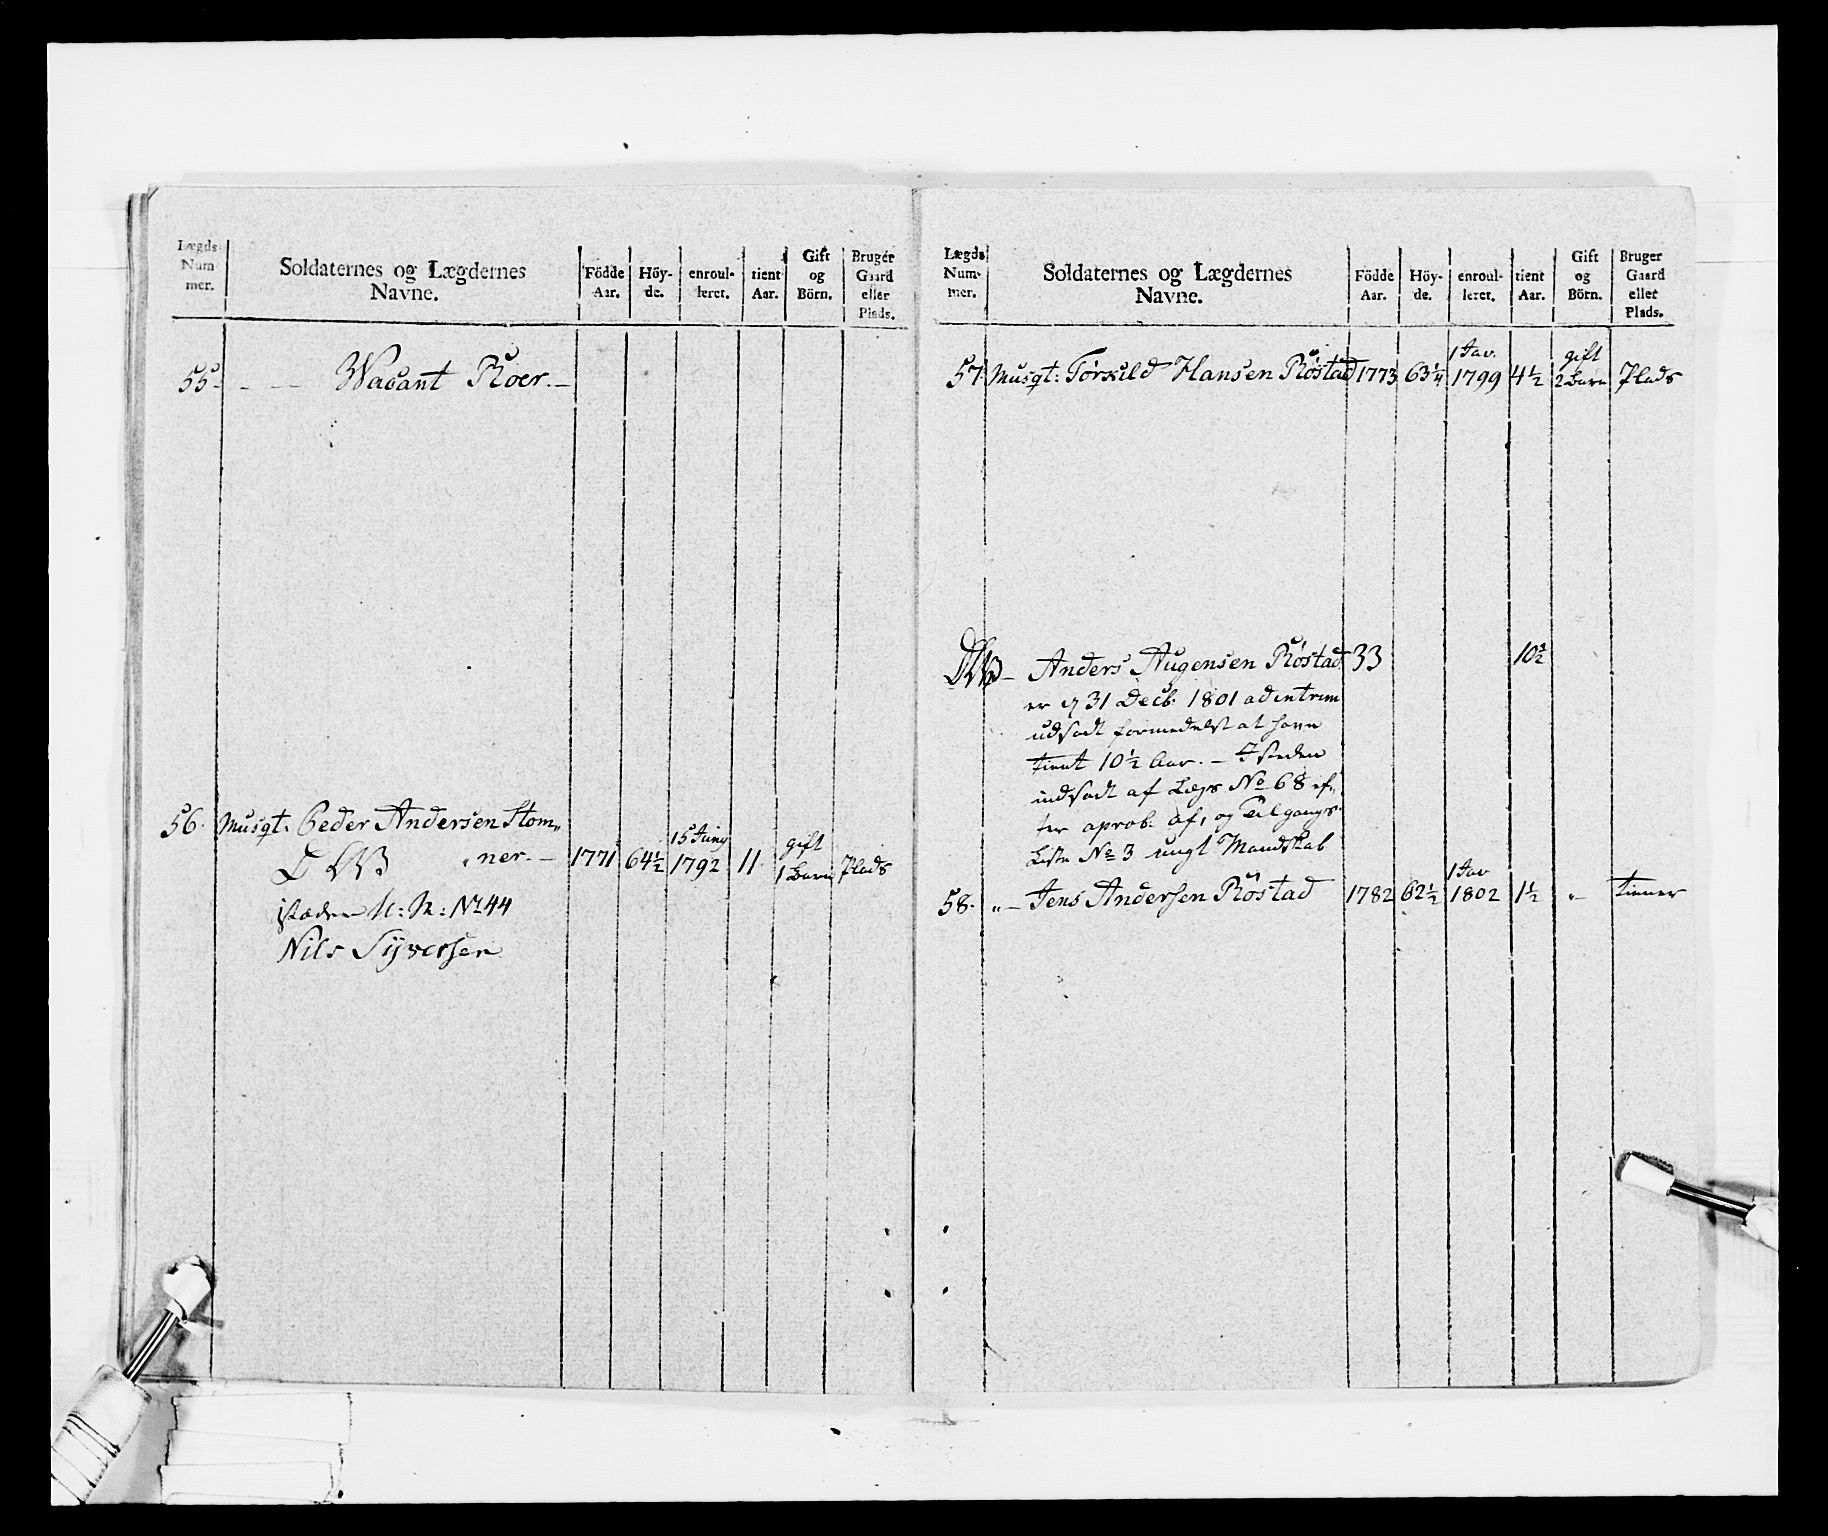 Lægds
Num
mer.
Soldaternes og Lægdernes
Navne.
Födde
Aar.
Höy-
de.
enroul-
leret.
tient
Aar.
Gift
og
Börn.
Bruger
Gaard
eller
Plads.
55 - - - Wacant Roer. -
56. Musqt: Peder Andersen Stom„
„ner. - 1771 64½ 15 Juny 1792 11 gift 1 Barn Plads
istæden N: N: No 44
Nils Syversen
Lægds
Num-
mer.
Soldaternes og Lægdernes
Navne.
Födde
Aar.
Höy-
de.
enroul-
leret.
tient
Aar.
Gift
og
Börn.
Bruger
Gaard
eller
Plads.
57 Musqt: Torkild Hansen Röstad 1773 63¼ 1 Jav. 1799 4½ gift 2 Barn Plads
Anders Augensen Röstad 33 10½
er d 31 Decb: 1801 ad intrim
udsadt formedelst at have
tient 10½ Aar. - I steden
indsadt af Lægs No 68 ef„
ter aprob: Af, og Tilgangs
Liste No 3 ungt Mandskab
58. „- Jens Andersen Röstad 1782 62½ 1 Jav 1802 1½ „- tiener